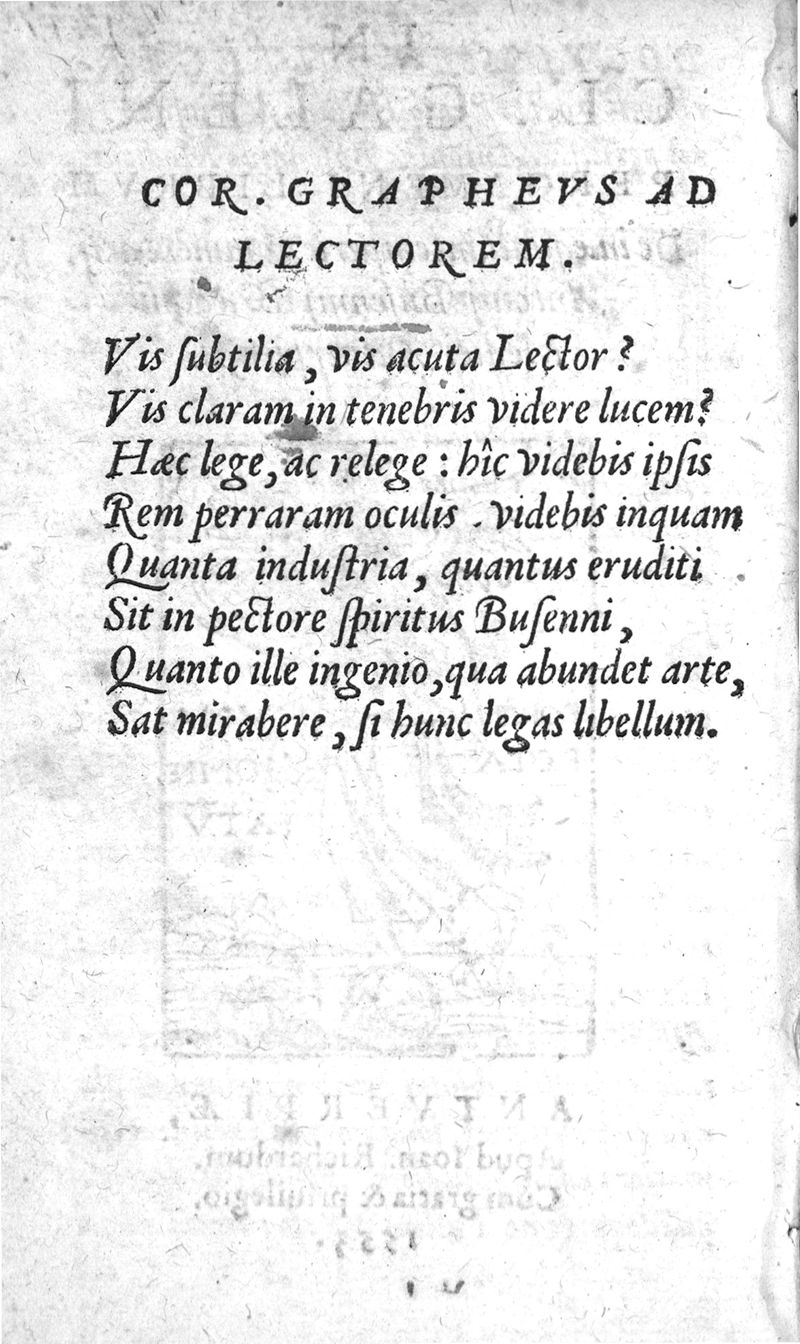 COR. GRAPHEVS AD
LECTOREM.
Vis ſubtilia, vis acuta Lector?
Vis claram in tenebris videre lucem?
Hæc lege, ac relege: hîc videbis ipſis
Rem perraram oculis. videbis inquam
Quanta induſtria, quantus eruditi
Sit in pectore ſpiritus Buſenni,
Quanto ille ingenio, qua abundet arte,
Sat mirabere, ſi hunc legas libellum.